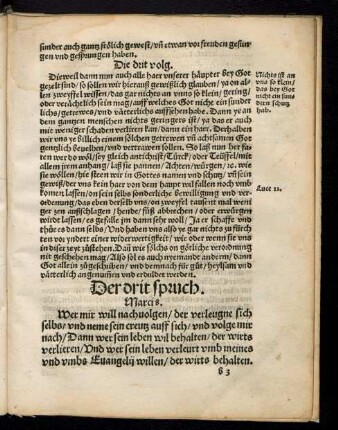 sunder auch gantz frölich gewest/ vñ etwan vor freuden gesungen
vnd gesprungen haben.
Die drit volg.
Dieweil dann nun auch alle haer vnserer häupter bey Got
gezelt sind/ so sollen wir hierauß gewißlich glauben/ ya on allen
zweyffel wissen/ das gar nichts an vnns so klein/ gering/
oder verächtlich sein mag/ auff welches Got nicht ein sunderlichs/
getrewes/ vnd väterlichs auffsehen habe. Dann ya an
dem gantzen menschen nichts geringers ist/ ya das er auch
mit weniger schaden verlieren kan/ dann ein haer. Derhalben
wir vns ye billich einem sölchen getrewen vñ achtsamen Got
gentzlich beuelhen/ vnd vertrawen sollen. So laß nun her fa
ren wer do wöll/ sey gleich antichrist/ Türck/ oder Teüffel/ mit
allem jrem anhang/ laß sie pannen/ Achten/ würgen/ ꝛc. wie
sie wöllen/ hie steen wir in Gottes namen vnd schutz/ vñ sein
gewiß/ der vns kein haer von dem haupt wil fallen noch vmbkomen
lassen/ on sein selbs sonderliche bewilligung vnd verordenung/
das eben derselb vns/ on zweyfel tausent mal weniger
zen außschlagen/ hende/ füß abbrechen/ oder erwürgen
würdt lassen/ es gefalle jm dann sehr woll/ Ja er schaffe vnd
thüe es dann selbs/ Vnd haben vns also ye gar nichts zu förchten
vor yndert einer widerwertigkeit/ wie oder wenn sie vns
in diser zeyt zustehen. Daũ wir sölchs on götliche verordnung
nit geschehen mag/ Also sol es auch nyemande anderm/ dann
Got allein zugeschriben/ vnd demnach für güt/ heylsam vnd
väterlich angenummen vnd erduldet werden.
Der drit spruch.
Marci 8.
Wer mir will nachuolgen/ der verleugne sich
selbs/ vnd neme sein creutz auff sich/ vnd volge mir
nach/ Dann wer sein leben wil behalten/ der wirts
verlieren/ Vnd wer sein leben verleurt vmb meines
vnd vmbs Euangelij willen/ der wirts behalten.
B 3
Nichts ist an
vns so klein/
das bey Got
nicht ein sun
dern schutz
hab.
Luce 12.